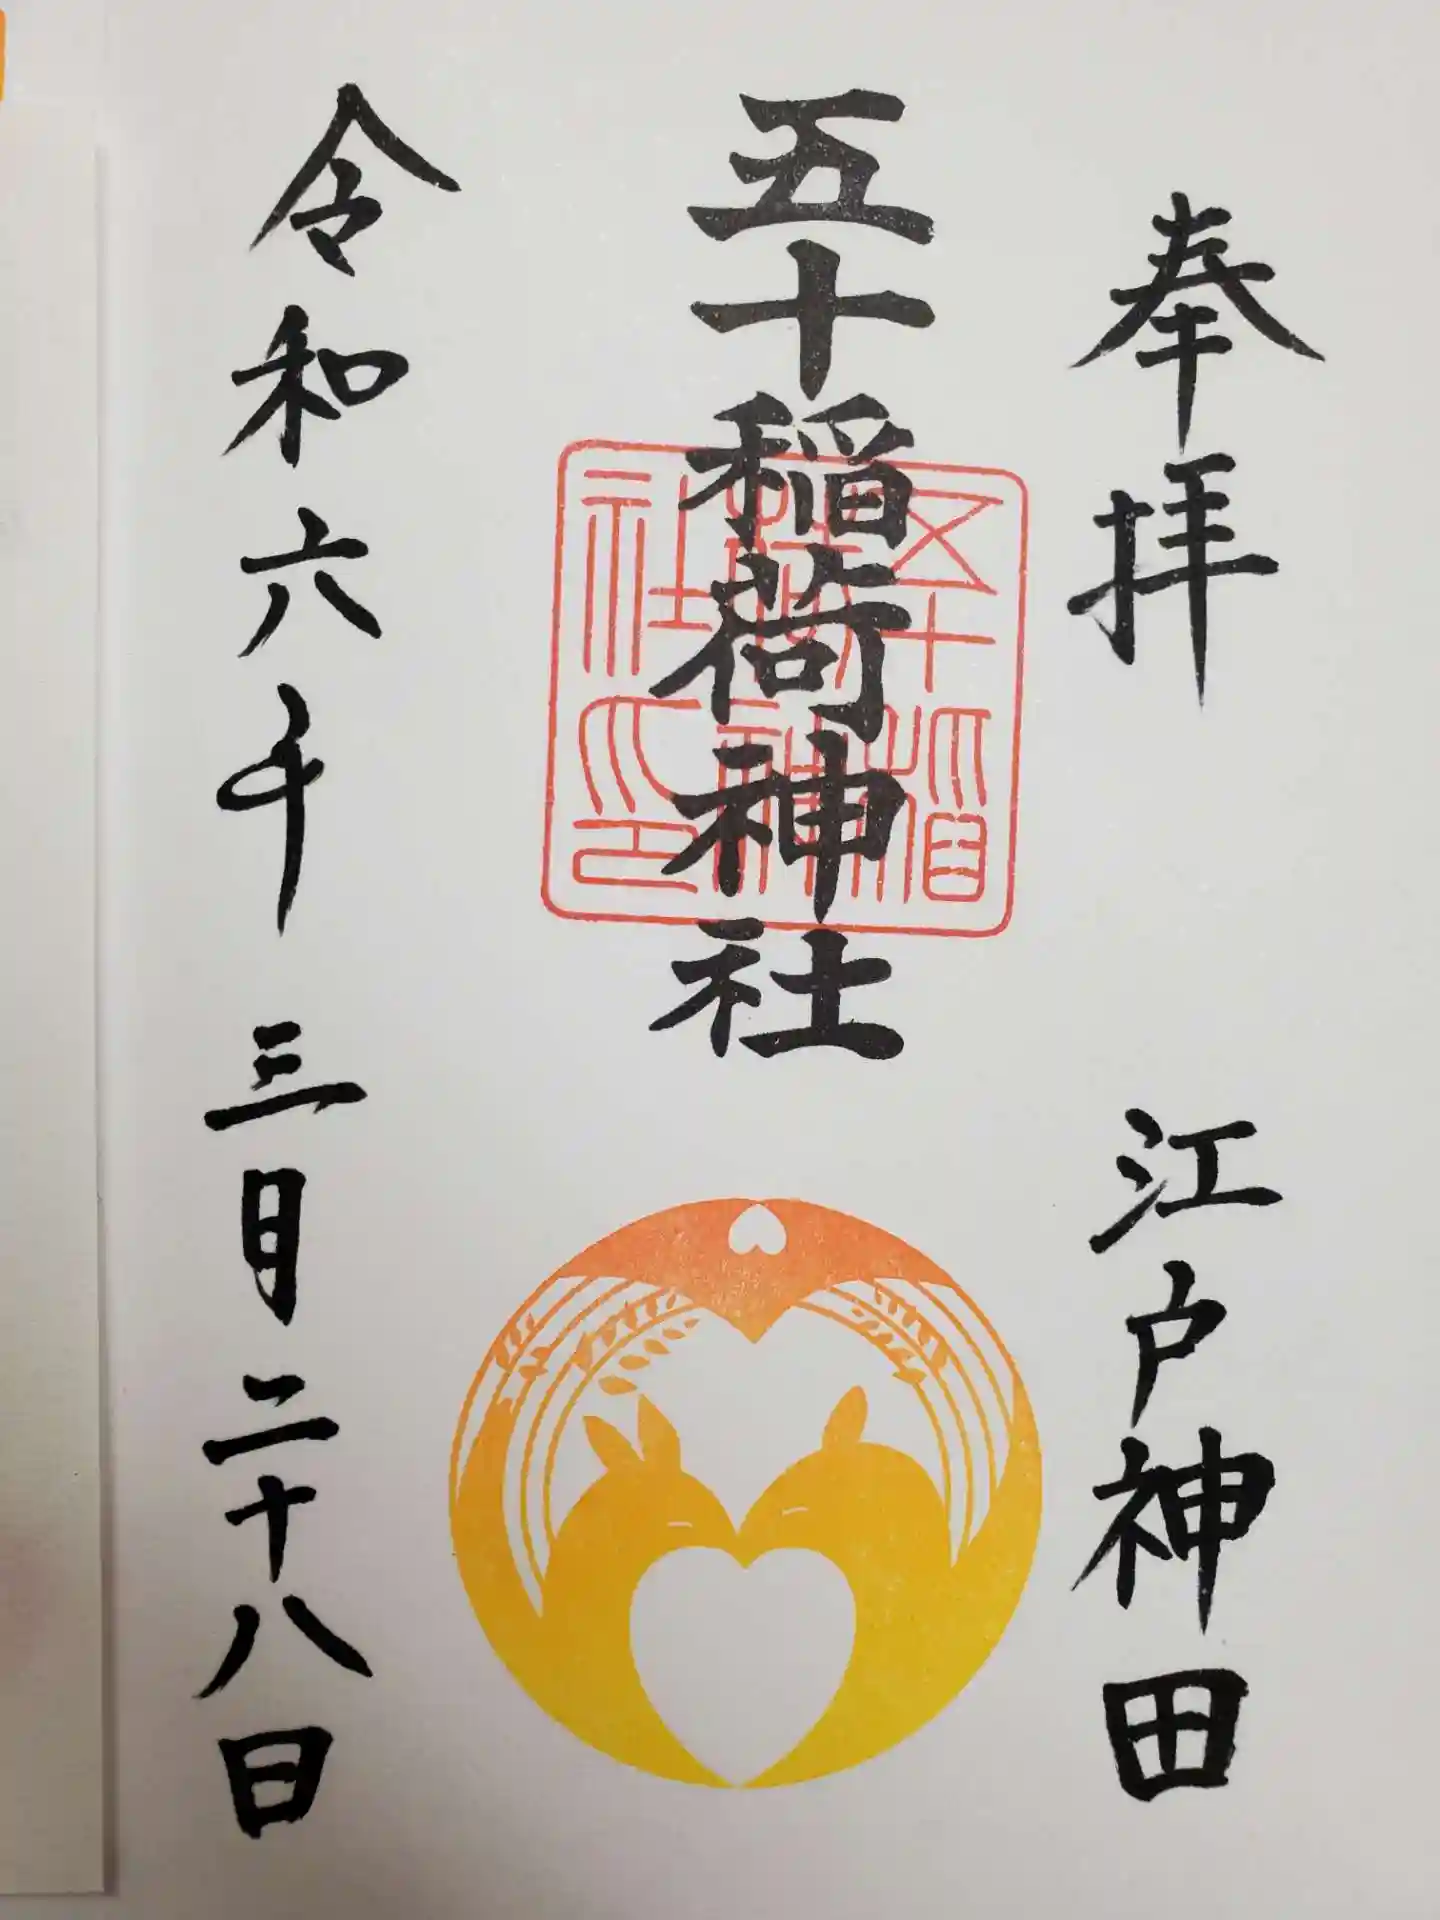 奉拝 江戸神田
五十稲荷神社
五十稲荷神社印
令和六年 三月二十八日